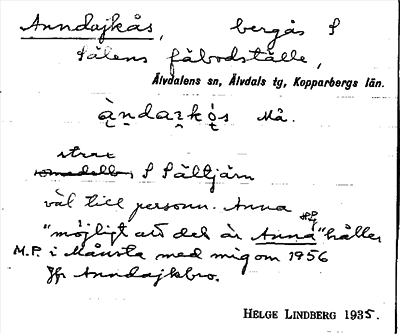 Anndajkås, bergås S
Sälens fäbodställe,
Älvdalens sn, Älvdals tg, Kopparbergs län.
à̱n̥darkǫ́s Må.
strax
omedelb. S Sältjärn
väl till personn. Anna
"möjligt att det är Anna" håller
M.P. i Månsta med mig om 1956
Jfr Anndajkbro.
HELGE LINDBERG 1935.